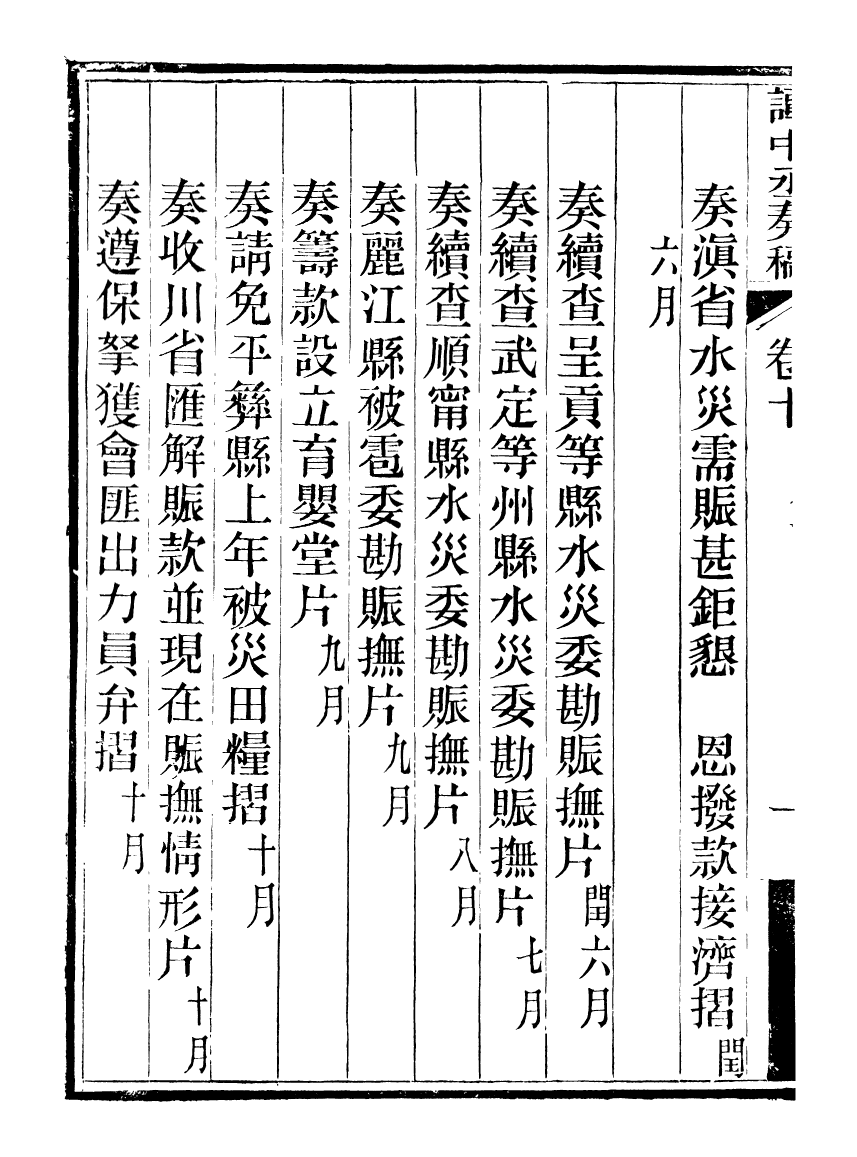 譚中丞奏稿 卷十 一
奏滇省水災需賑甚鉅懇　恩撥款接濟摺 閏
六月
奏續查呈貢等縣水災委勘賑撫片 閏六月
奏續查武定等州縣水災委勘賑撫片 七月
奏續查順甯縣水災委勘賑撫片 八月
奏麗江縣被雹委勘賑撫片 九月
奏籌款設立育嬰堂片 九月
奏請免平彝縣上年被災田糧摺 十月
奏收川省匯解賑款並現在賑撫情形片 十月
奏遵保拏獲會匪出力員弁摺 十月